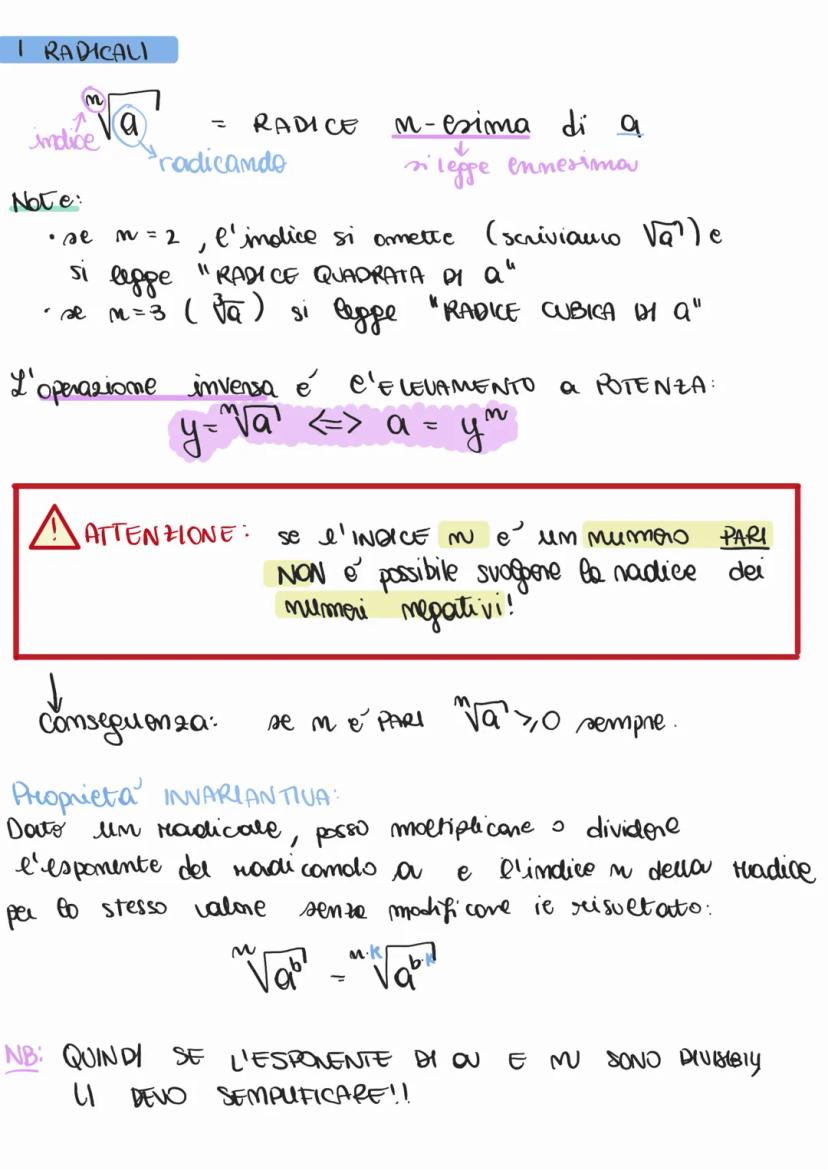 I RADICALI
ⁿ√a = RADICE n-esima di a
indice
radicando
si legge ennesima
Note:
• se n = 2, l'indice si omette (scriviamo √a) e
si legge "RADICE QUADRATA DI a"
• se n = 3 (³√a) si legge "RADICE CUBICA DI a"
L'operazione inversa é l'ELEVAMENTO a POTENZA:
y = ⁿ√a <=> a = yⁿ
! ATTENZIONE: se l'INDICE n é un numero PARI
NON é possibile svolgere la radice dei
numeri negativi!
↓
Conseguenza: se n é PARI ⁿ√a ≥ 0 sempre.
Proprietá INVARIANTIVA:
Dato un radicale, posso moltiplicare o dividere
l'esponente del radicando a e l'indice n della radice
per lo stesso valore senza modificare il risultato:
ⁿ√aᵇ = ⁿ·ᵏ√aᵇ·ᵏ
NB: QUINDI SE L'ESPONENTE DI a E n SONO DIVISIBILI
LI DEVO SEMPLIFICARE!!